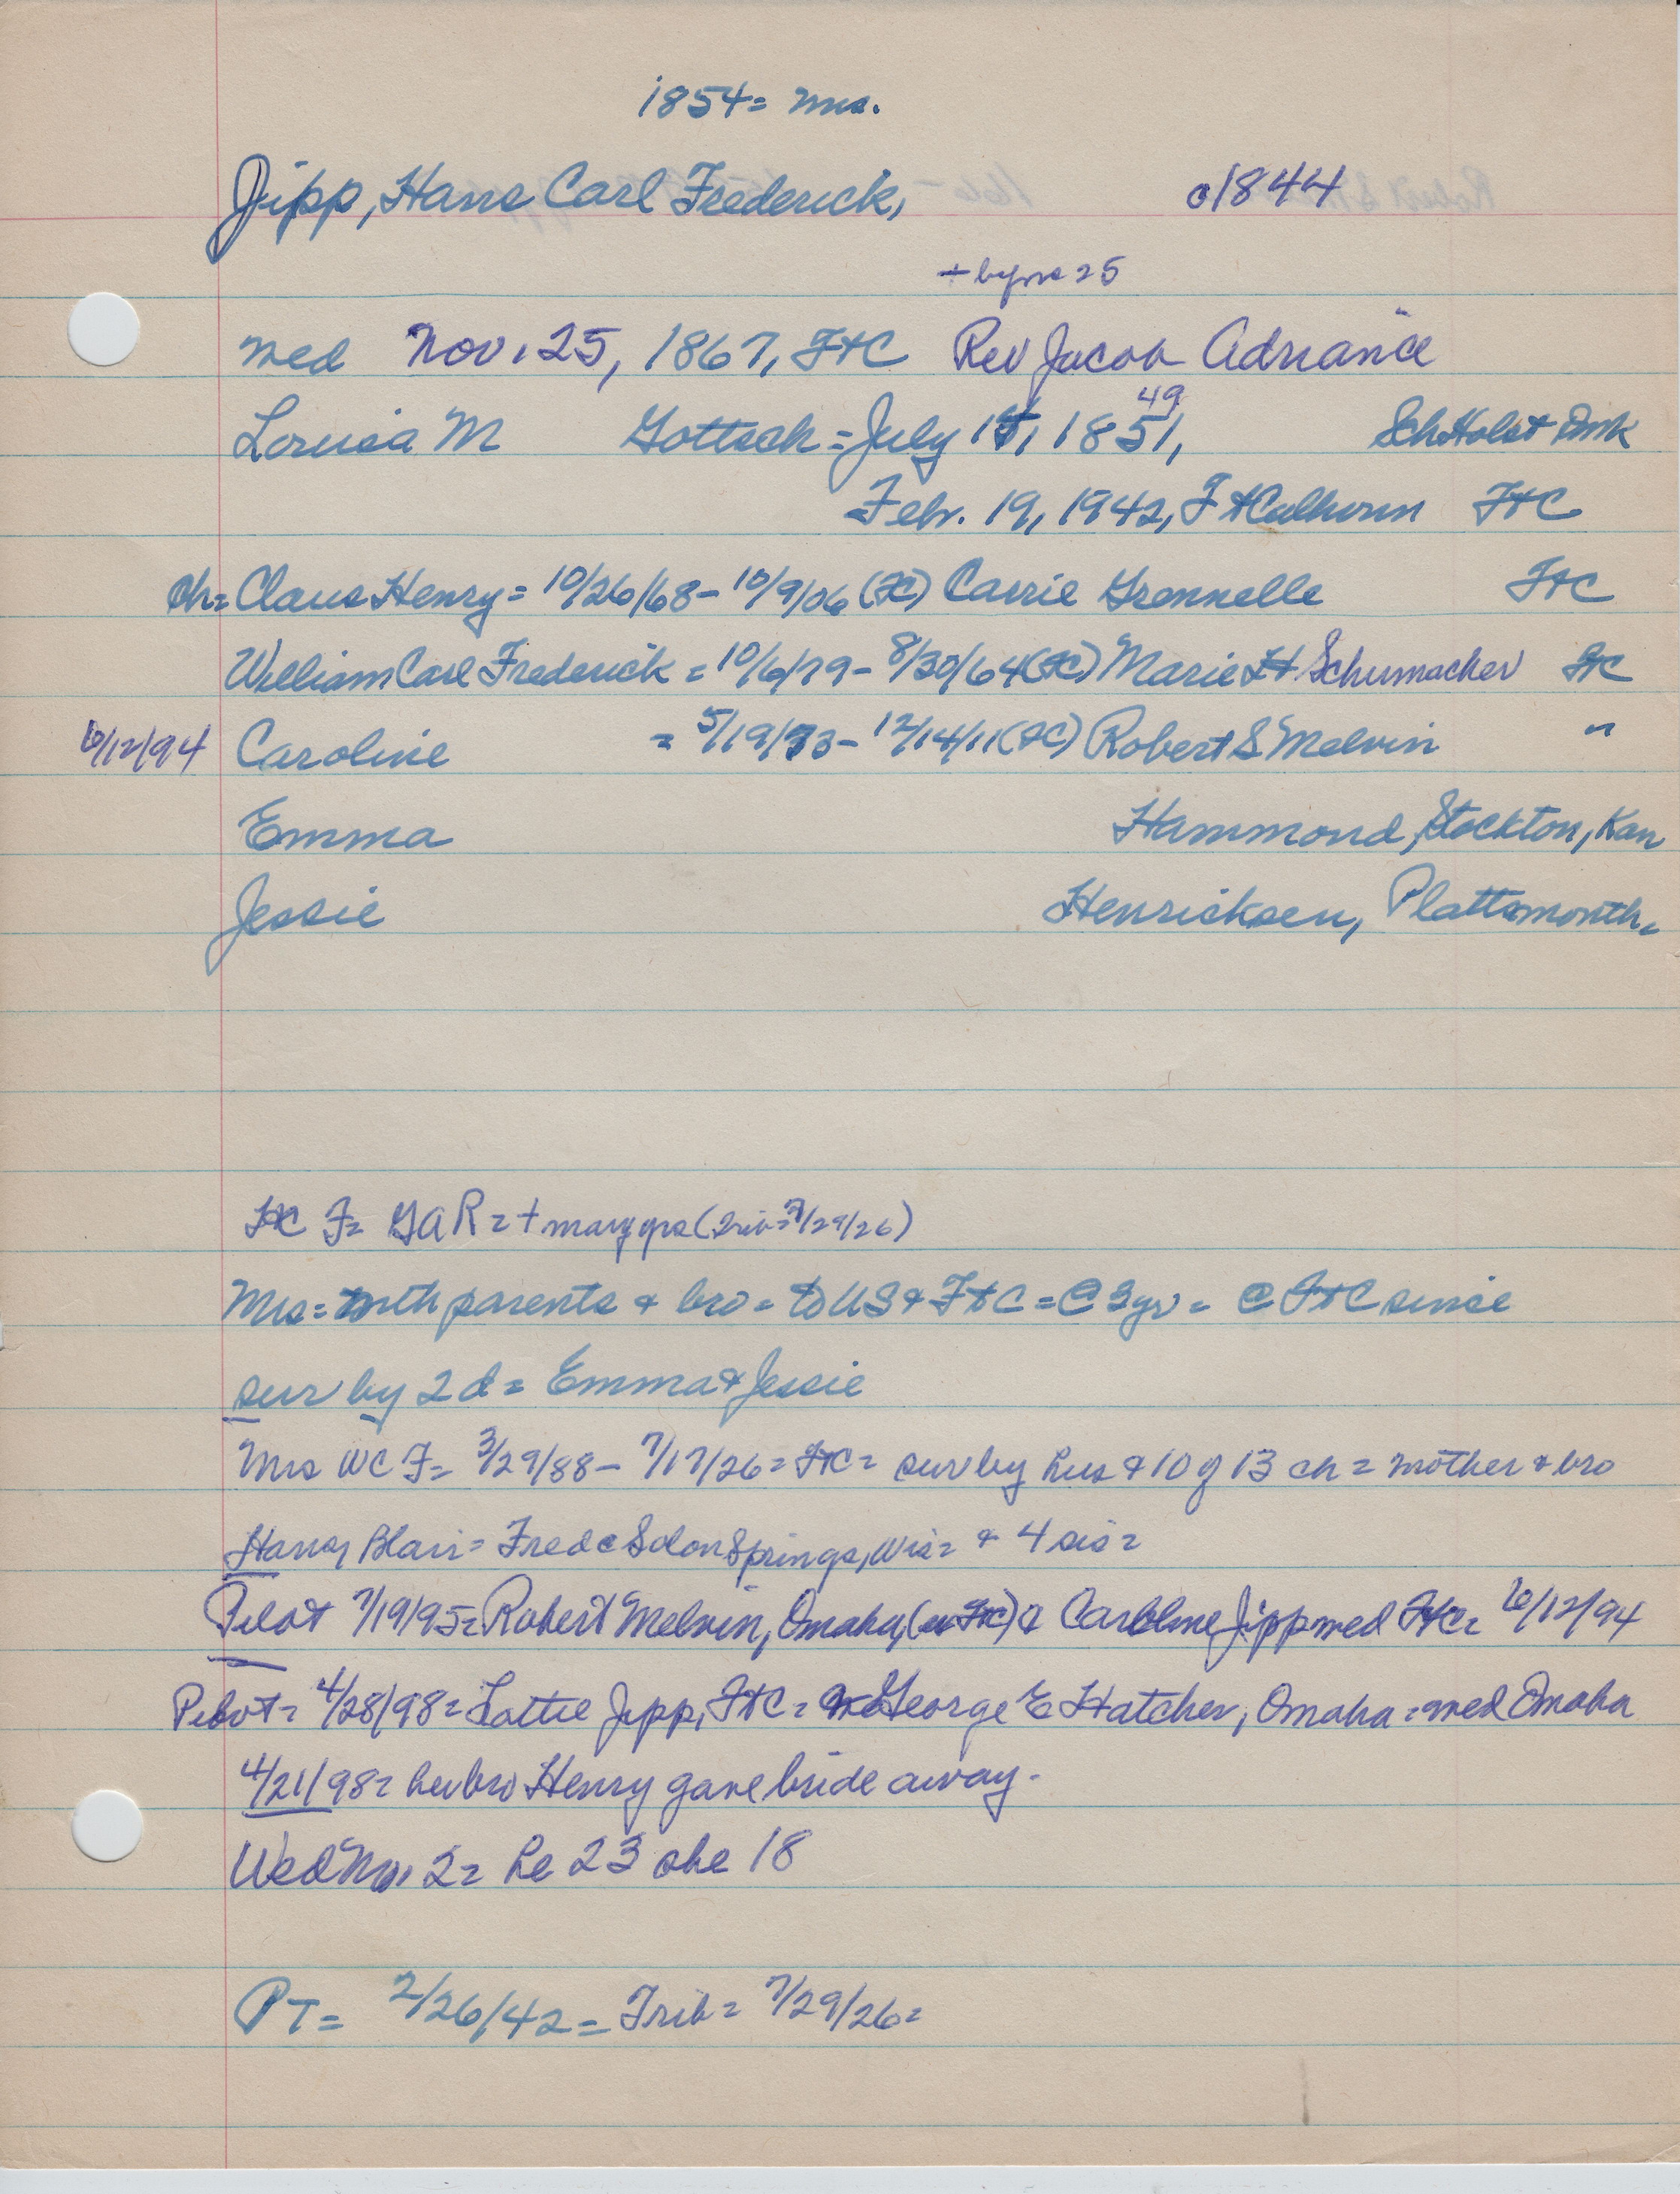 1854= Mrs.
Jipp, Hans Carl Frederick, c1844
+ by 25
med Nov. 25, 1867, FtC Rev Jacob Adriance
49
Louisa M Gottsch = July 1, 1851, SchHolst Dmk
= Febr. 19, 1942, Ft Calhoun FtC
ch= Claus Henry = 10/26/68 - 10/9/06 (FC) Carrie Grennelle FtC
William Carl Frederick = 10/6/79 - 8/30/64 (FC) Marie H Schumacher FtC
6/12/94 Caroline = 5/19/73 - 12/14/11 (FC) Robert S Melvin "
Emma Hammond, Stockton, Kan
Jessie Henricksen, Plattsmouth.
FtC F= GAR = + many yrs (Trib = 7/29/26)
Mrs = with parents & bro = to US & FtC = @ 3 yr = @ FtC since
sur by 2 d = Emma & Jessie
Mrs WC F= 3/29/88 - 7/17/26 = FtC = sur by hus & 10 of 13 ch = mother & bro
Harry Blair = Fred @ Solon Springs, Wis = & 4 sis =
Pilot 7/19/95 = Robert Melvin, Omaha, (ex FtC) & Caroline Jipp med FtC = 6/12/94
Pilot = 4/28/98 = Lottie Jipp, FtC = George E Hatcher, Omaha = med Omaha
4/21/98 = her bro Henry gave bride away -
Wed No. 2 = he 23 she 18
PT = 2/26/42 = Trib = 7/29/26 =